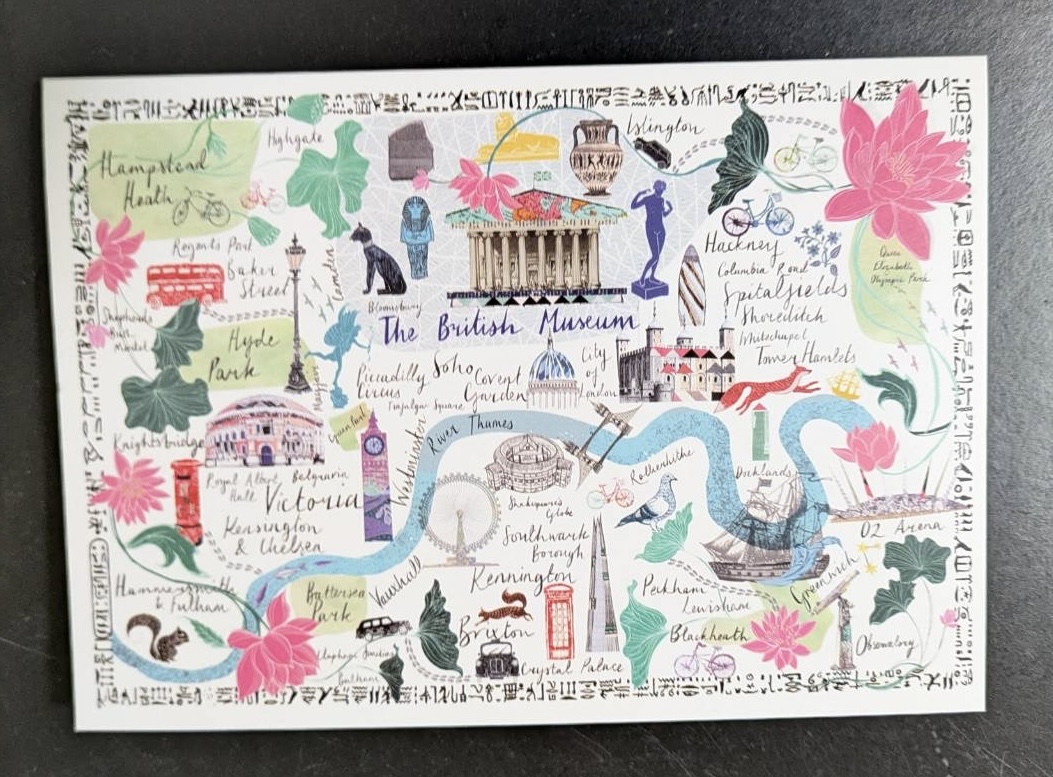 Highgate
Islington
Hampstead
Heath
Regents Park
Baker
Street
Camden
Hackney
Columbia Road
Spitalfields
Shoreditch
Whitechapel
Tower Hamlets
Queen
Elizabeth
Olympic Park
Bloomsbury
The British Museum
Shepherds
Bush
Market
Hyde
Park
Mayfair
Piccadilly
Circus
Soho
Covent
Garden
Trafalgar Square
City
of
London
Green Park
Knightsbridge
Royal Albert
Hall
Belgravia
Victoria
Kensington
& Chelsea
Westminster
River Thames
Shakespeare's
Globe
Rotherhithe
Docklands
O2 Arena
Southwark
Borough
Kennington
Hammersmith
& Fulham
Battersea
Park
Vauxhall
Peckham
Lewisham
Greenwich
Brixton
Blackheath
Observatory
Clapham
Crystal Palace